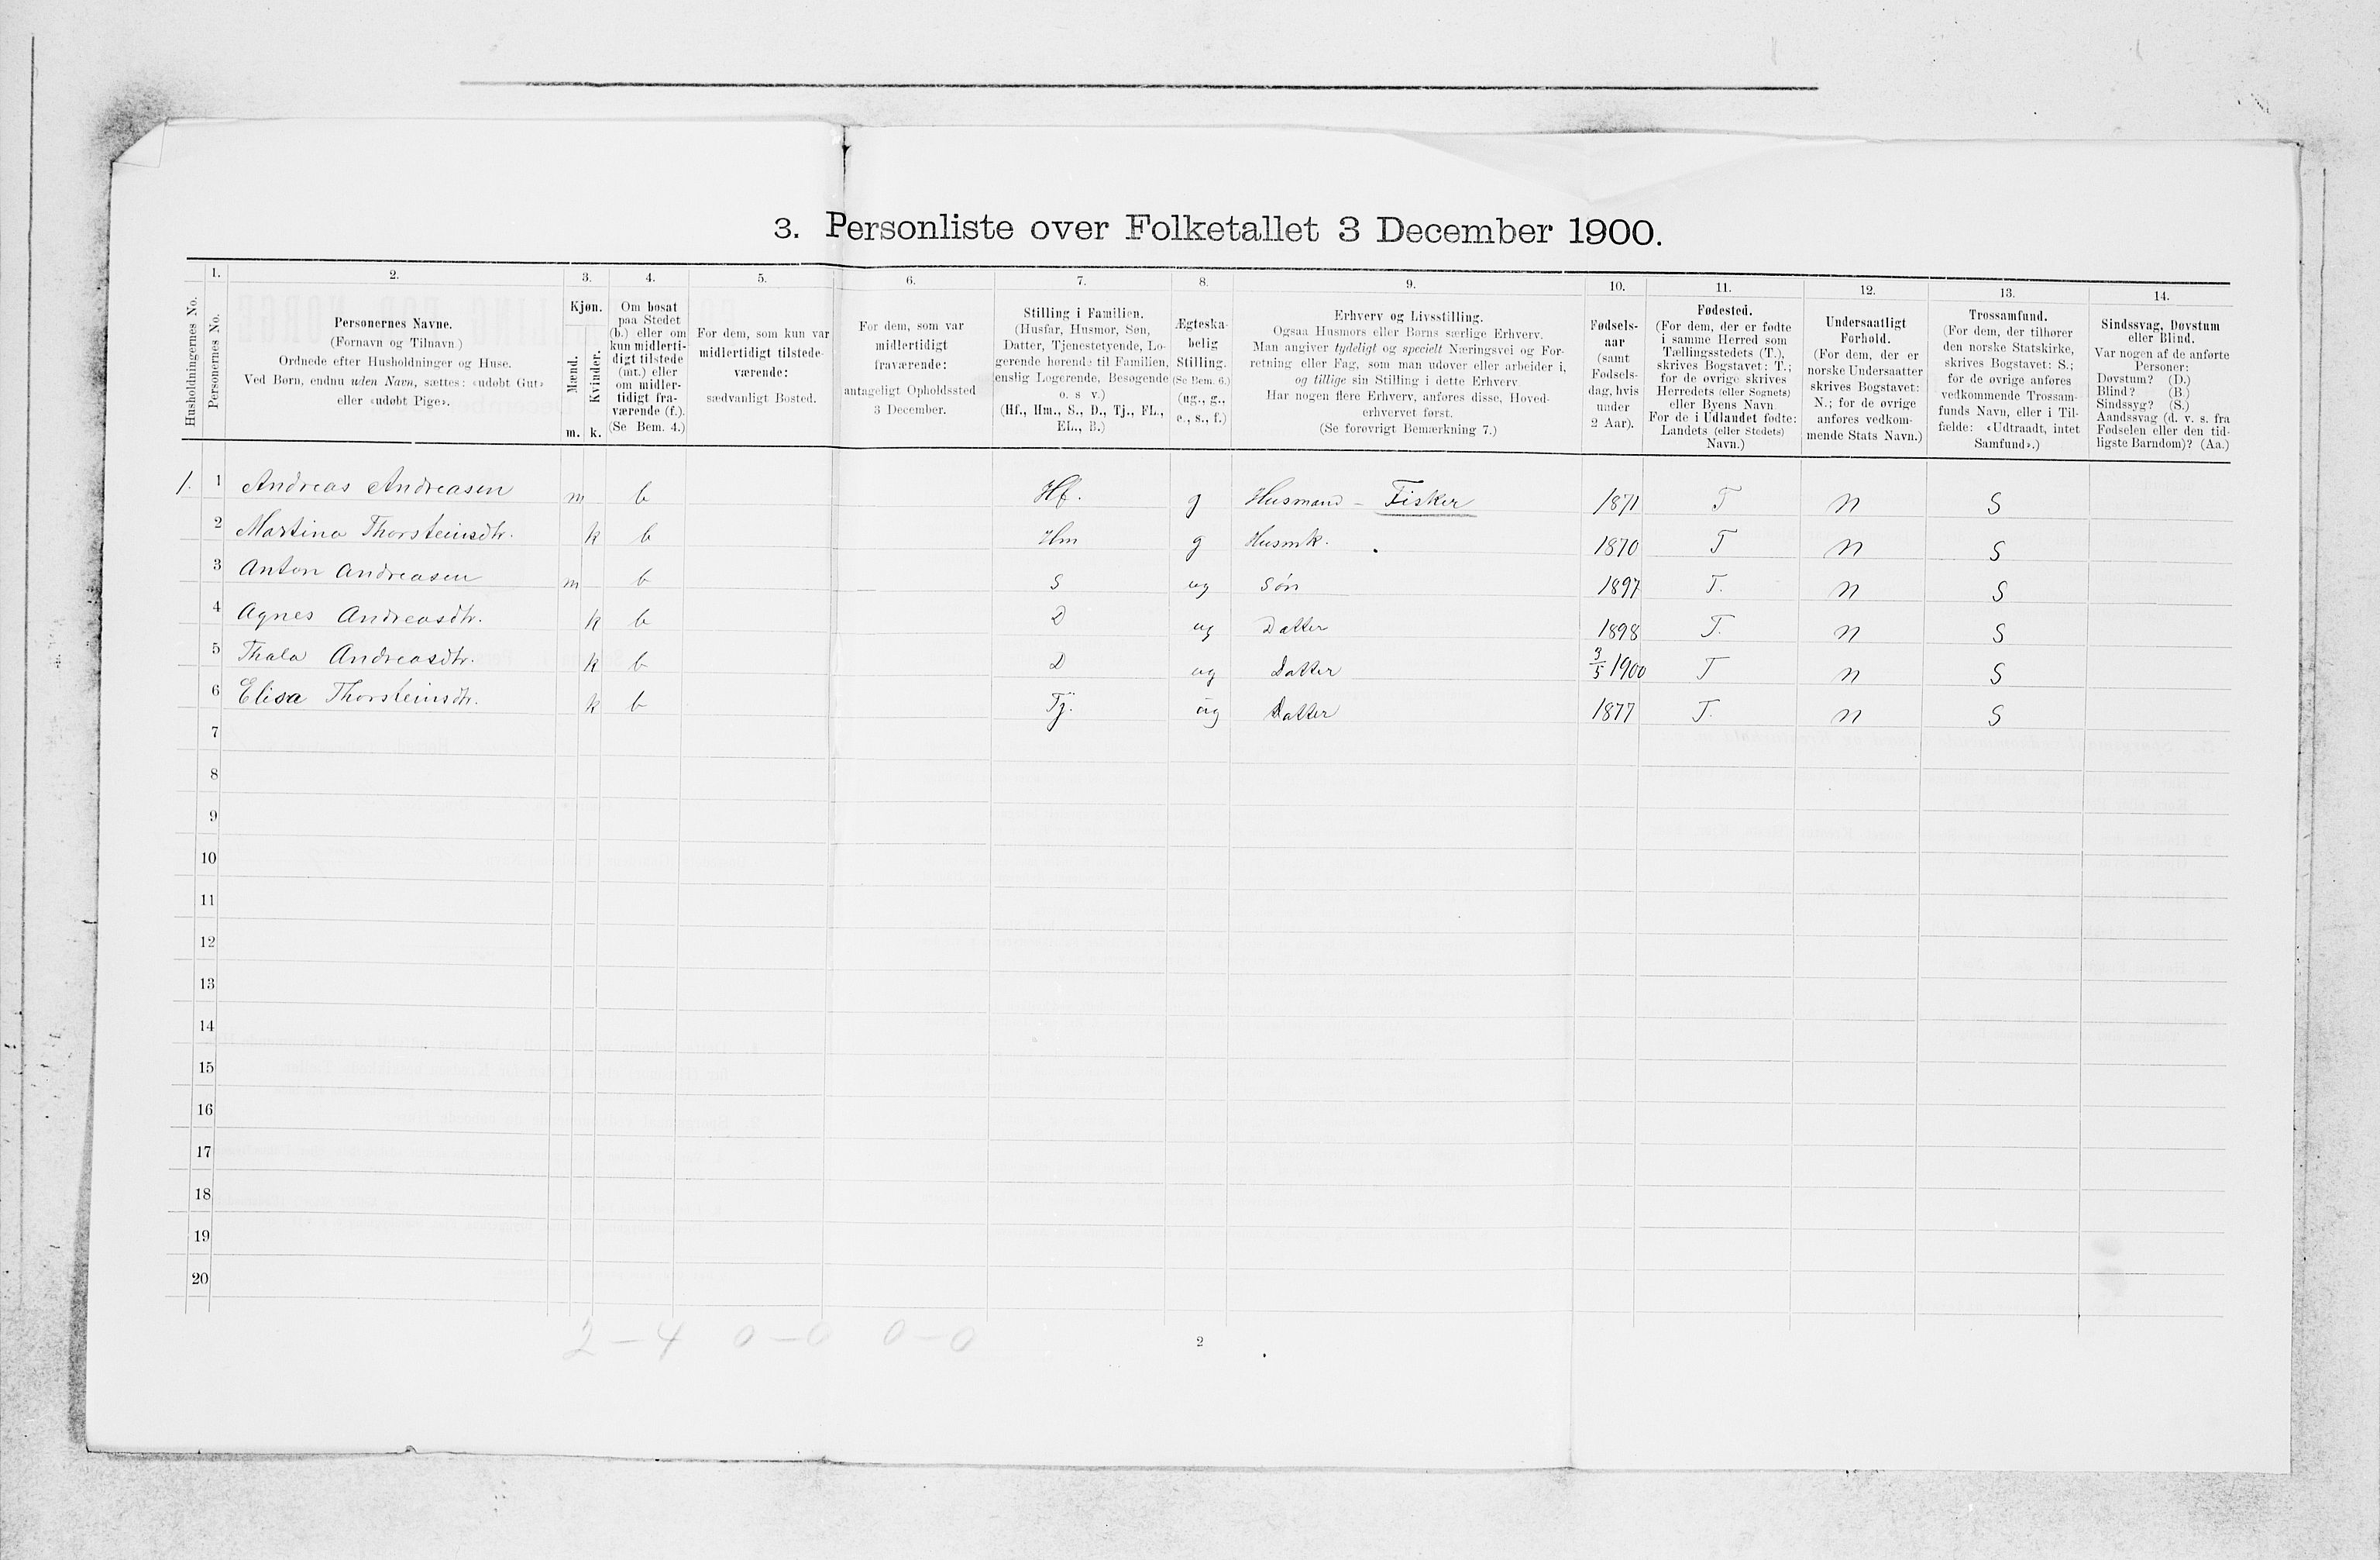 3. Personliste over Folketallet 3 December 1900.
1. 2. 3. 4. 5. 6. 7. 8. 9. 10. 11. 12. 13. 14.
Husholdningernes No.
Personernes No.
Personernes Navne.
(Fornavn og Tilnavn.)
Ordnede efter Husholdninger og Huse.
Ved Børn, endnu uden Navn, sættes: «udøbt Gut»
eller «udøbt Pige».
Kjøn.
Mænd.
Kvinder.
m. k.
Om bosat
paa Stedet
(b.) eller om
kun midlerti-
digt tilstede
(mt.) eller
om midler-
tidigt fra-
værende (f.).
(Se Bem. 4.)
For dem, som kun var
midlertidigt tilstede-
værende:
sædvanligt Bosted.
For dem, som var
midlertidigt
fraværende:
antageligt Opholdssted
3 December.
Stilling i Familien.
(Husfar, Husmor, Søn,
Datter, Tjenestetyende, Lo-
gerende hørende til Familien,
enslig Logerende, Besøgende
o. s. v.)
(Hf., Hm., S., D., Tj., FL.,
EL., B.)
Ægteska-
belig
Stilling.
(Se Bem. 6.)
(ug., g.,
e., s., f.)
Erhverv og Livsstilling.
Ogsaa Husmors eller Børns særlige Erhverv.
Man angiver tydeligt og specielt Næringsvei og For-
retning eller Fag, som man udøver eller arbeider i,
og tillige sin Stilling i dette Erhverv.
Har nogen flere Erhverv, anføres disse, Hoved-
erhvervet først.
(Se forøvrigt Bemærkning 7.)
Fødsels-
aar
(samt
Fødsels-
dag, hvis
under
2 Aar).
Fødested.
(For dem, der er fødte
i samme Herred som
Tællingsstedets (T.),
skrives Bogstavet: T.;
for de øvrige skrives
Herredets (eller Sognets)
eller Byens Navn
For de i Udlandet fødte:
Landets (eller Stedets)
Navn.)
Undersaatligt
Forhold.
(For dem, der er
norske Undersaatter
skrives Bogstavet:
N.; for de øvrige
anføres vedkom-
mende Stats Navn.)
Trossamfund.
(For dem, der tilhører
den norske Statskirke,
skrives Bogstavet: S.;
for de øvrige anføres
vedkommende Trossam-
funds Navn, eller i Til-
fælde: «Udtraadt, intet
Samfund».)
Sindssvag, Døvstum
eller Blind.
Var nogen af de anførte
Personer:
Døvstum? (D.)
Blind? (B.)
Sindssyg? (S.)
Aandssvag (d. v. s. fra
Fødselen eller den tid-
ligste Barndom)? (Aa.)
1. 1 Andreas Andreasen m b Hf. g Husmand – Fisker 1871 T N S
2 Martina Thorsteinsdtr. k b Hm g Husmk. 1870 T N S
3 Anton Andreasen m b S ug Søn 1897 T. N S
4 Agnes Andreasdtr. k b D ug Datter 1898 T. N S
5 Thala Andreasdtr. k b D ug Datter 3/5 1900 T N S
6 Elisa Thorsteinsdtr. k b Tj. ug Datter 1877 T. N S
7
8
9
10
11
12
13
14
15
16
17
18
19
20
2 – 4 0 – 0 0 – 0
2